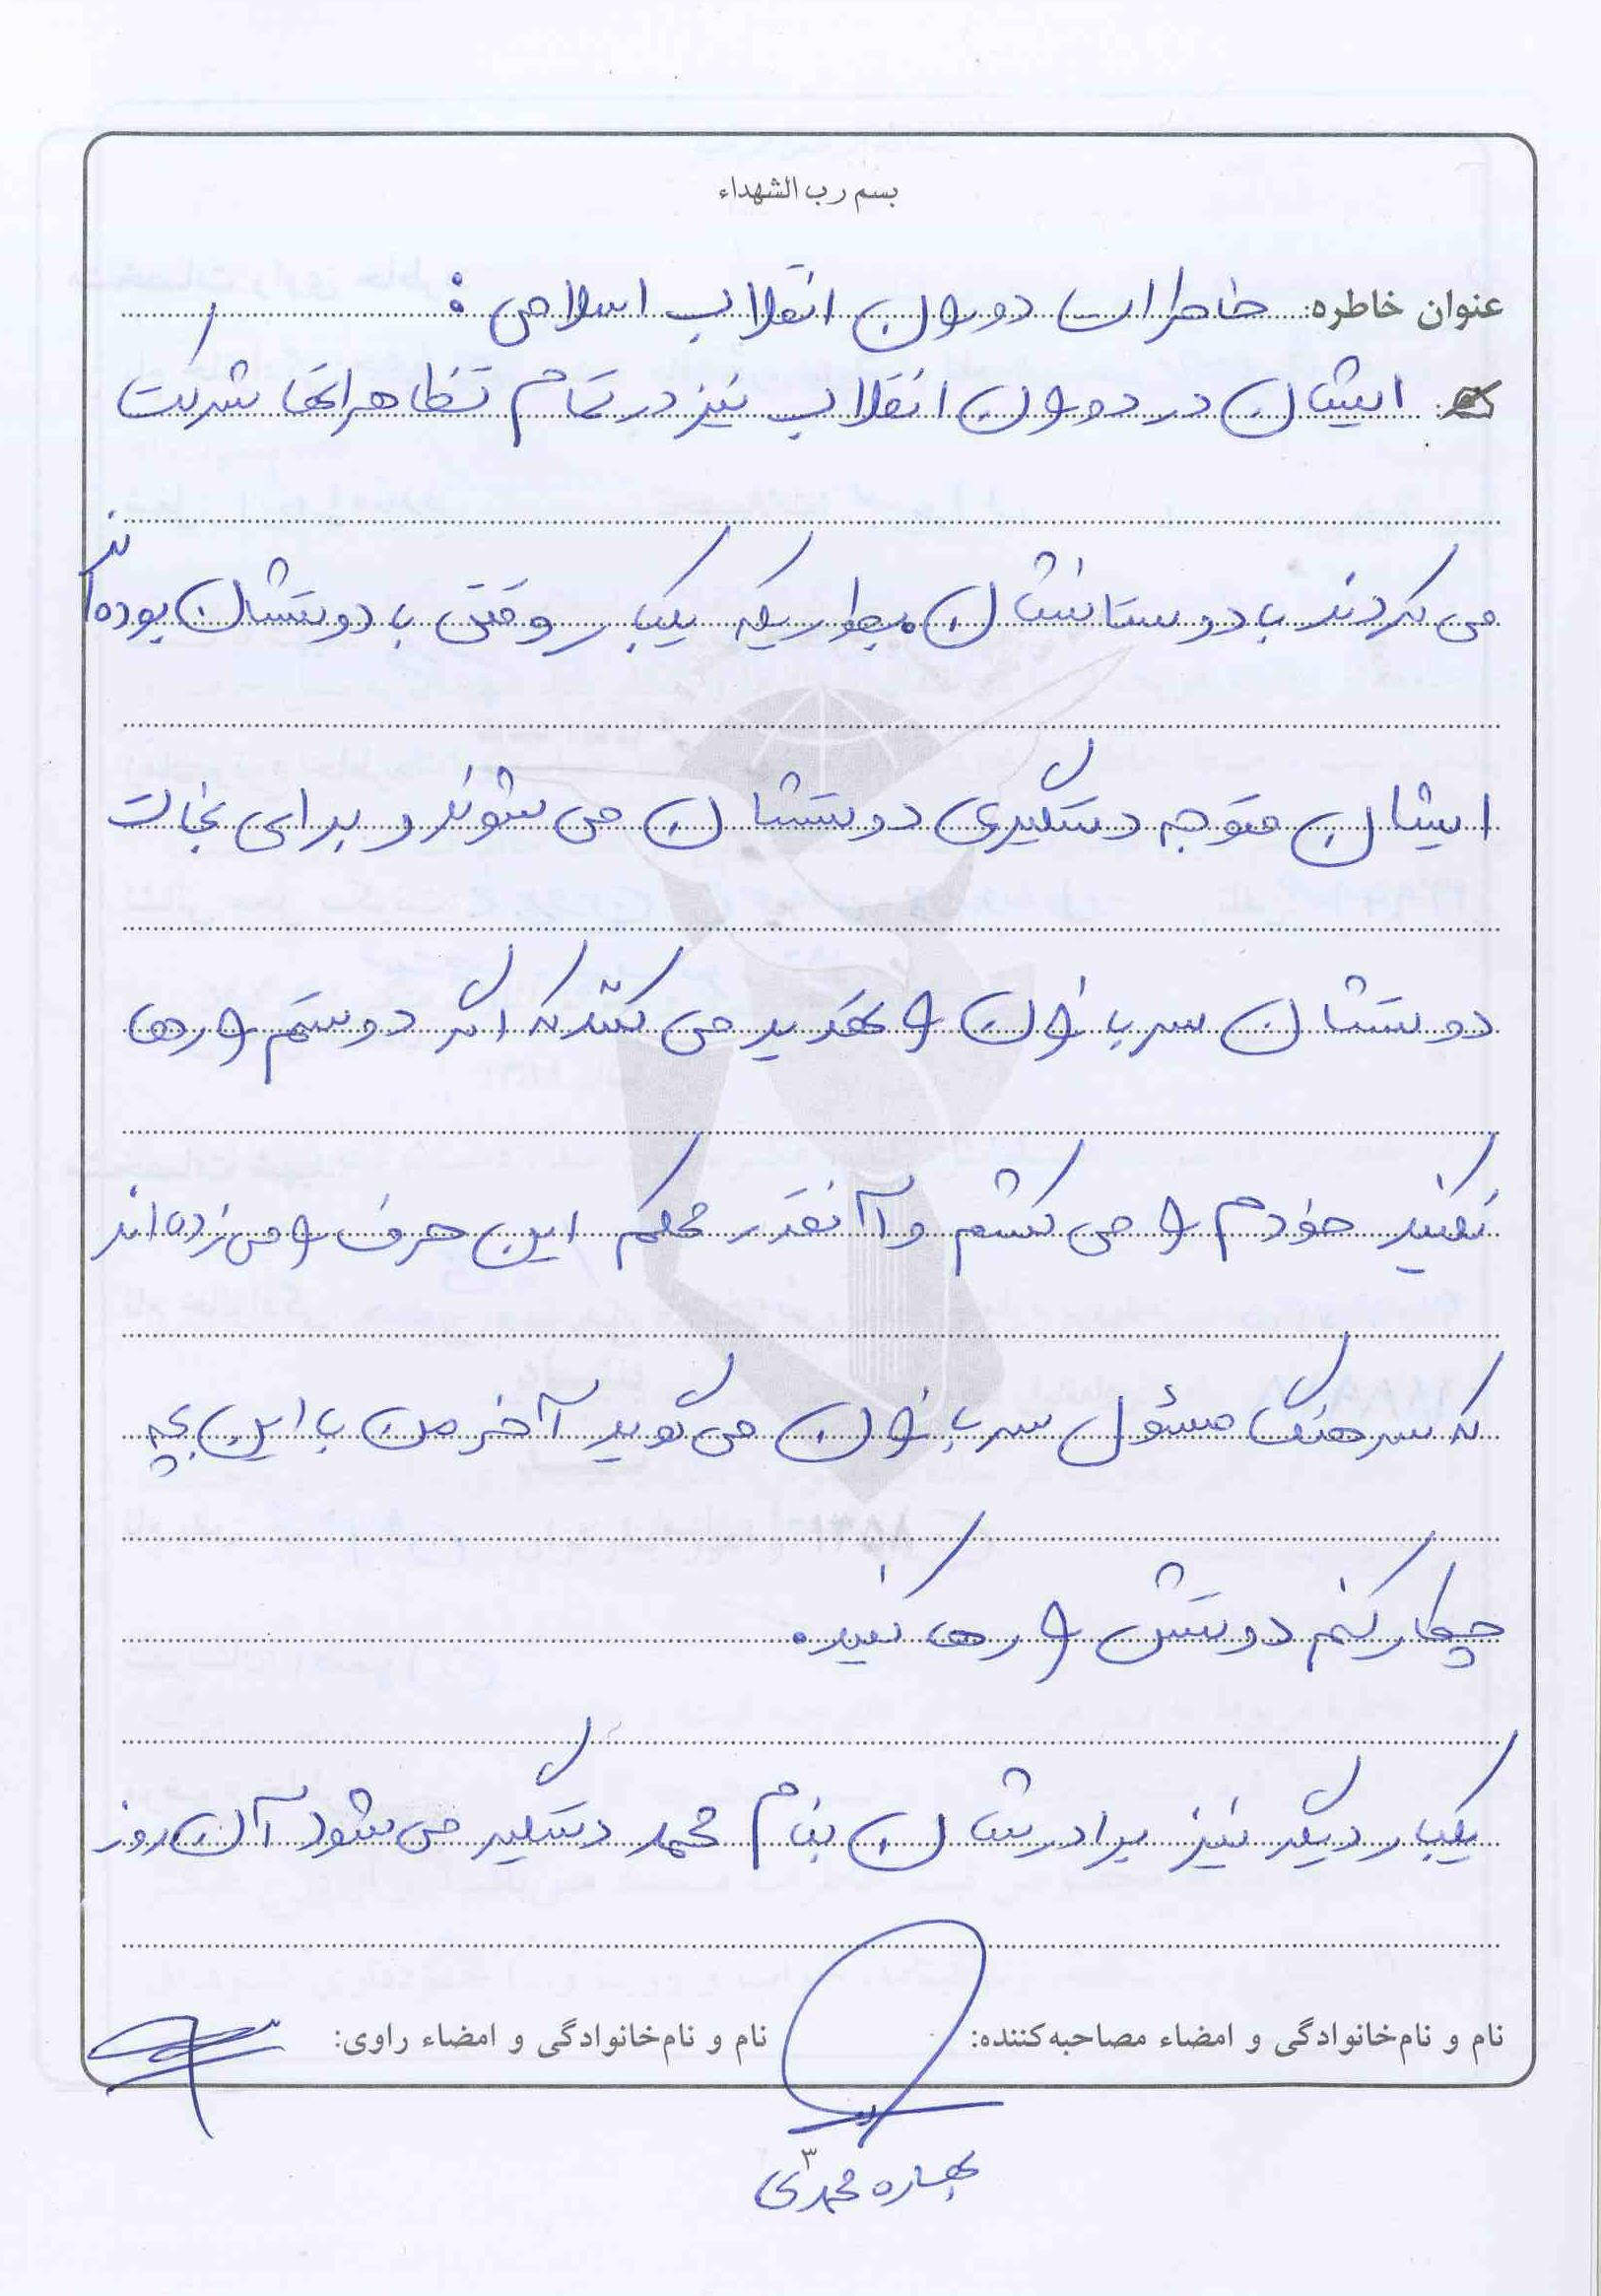 بسم رب الشهداء
عنوان خاطره: خاطرات دوران انقلاب اسلامی :
ایشان در دوران انقلاب نیز در تمام تظاهراتها شرکت
می کردند با دوستانشان بطوریکه یکبار وقتی با دوستشان بوده اند
ایشان متوجه دستگیری دوستشان می شوند و برای نجات
دوستشان سربازان را تهدید می کنند که اگر دوستم را رها
نکنید خودم را می کشم و آنقدر محکم این حرف را می زده اند
که سرهنگ مسئول سربازان می گوید آخر من با این بچه
چکار کنم دوستش را رها کنید.
یکبار دیگر نیز برادرشان بنام محمد دستگیر می شود آن روز
نام و نام خانوادگی و امضاء مصاحبه کننده: نام و نام خانوادگی و امضاء راوی:
۳
محمدی